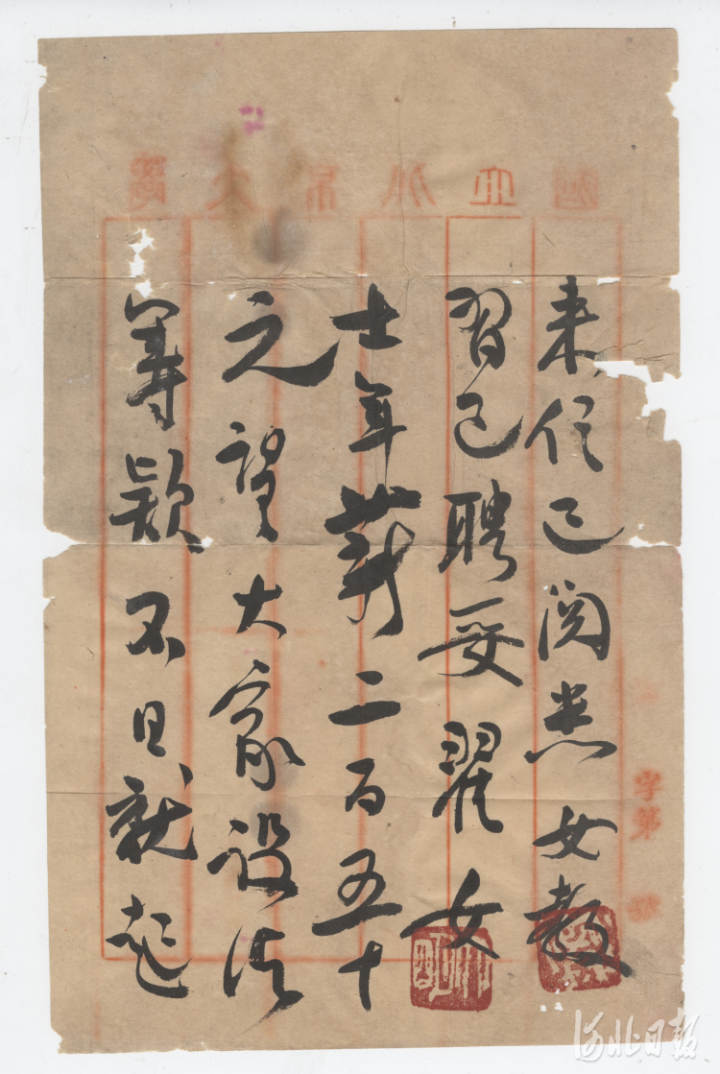 来信已阅悉女教
习已聘妥翟女
士年薪二百五十
之望大家设法
筹款不日就起
字第 號
河北日报